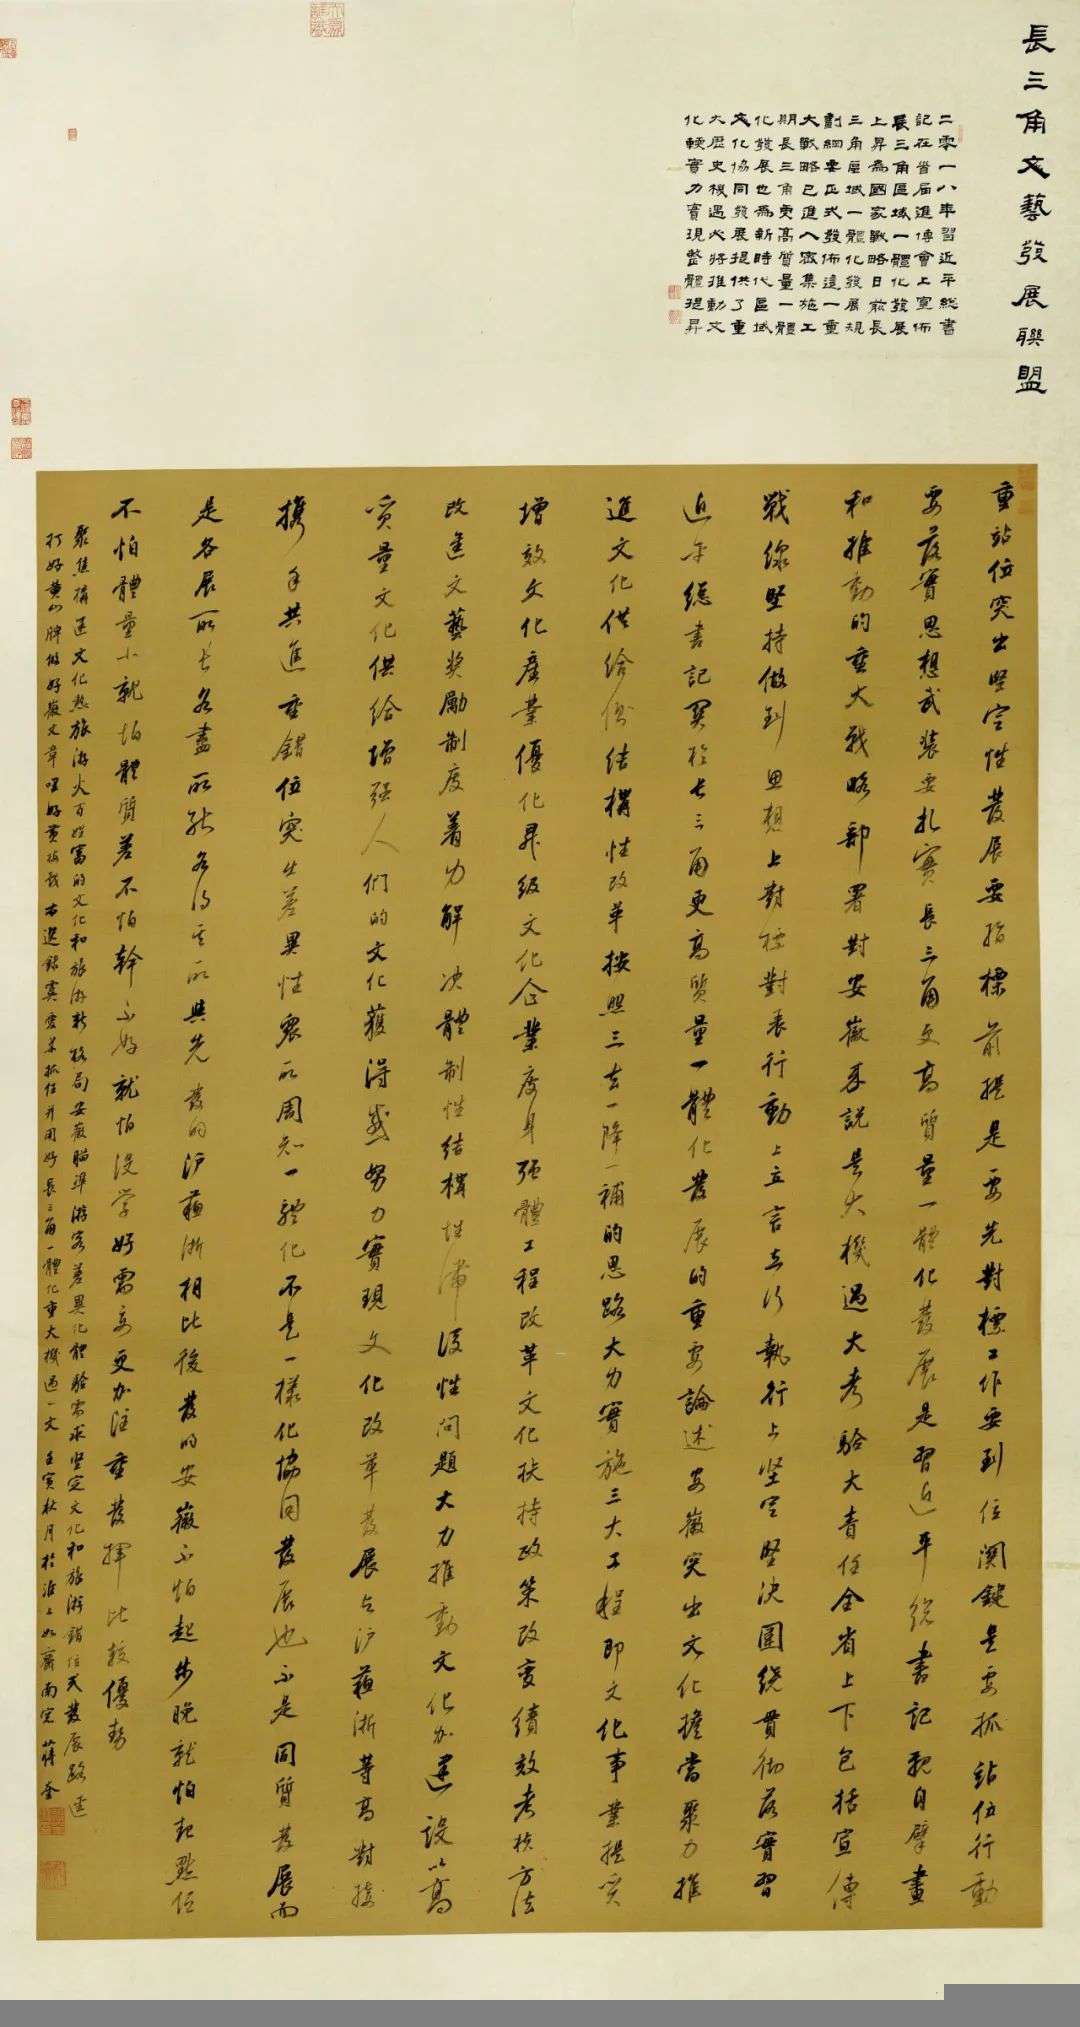 長三角文藝發展聯盟
二零一八年習近平總書
記在首届進博會上宣佈
長三角區域一體化發展
上昇為國家戰略日前長
三角區域一體化發展規
劃綱要正式發佈這一重
大戰略已進入密集施工
期長三角更高質量一體
化發展也為新時代區域
文化協同發展提供了重
大歷史機遇必將推動文
化軟實力實現整體提昇
重站位突出堅定性發展要指標前提是要先對標工作要到位關鍵是要抓站位行動
要落實思想武裝要扎實長三角更高質量一體化發展是習近平總書記親自擘畫
和推動的重大戰略部署對安徽來説是大機遇大考驗大責任全省上下包括宣傳
戰線堅持做到思想上對標對表行動上立言立行執行上堅定堅決圍繞貫徹落實習
近平總書記關於長三角更高質量一體化發展的重要論述安徽突出文化擔當聚力推
進文化供給側結構性改革按照三去一降一補的思路大力實施三大工程即文化事業提質
增效文化產業優化昇級文化企業瘦身强體工程改革文化扶持政策改變績效考核方法
改進文藝奬勵制度着力解決體制性結構性滯後性問題大力推動文化加建設以高
質量文化供給增强人們的文化獲得感努力實現文化改革發展與沪蘇浙等高對接
攜手共進重錯位突出差異性衆所周知一體化不是一樣化協同發展也不是同質發展而
是各展所長各盡所能各得其所與先發的沪蘇浙相比後發的安徽不怕起步晚就怕起點低
不怕體量小就怕體質差不怕幹不好就怕没學好需要更加注重發揮比較優勢
聚焦構建文化熱旅游火百姓富的文化和旅游新格局安徽瞄準游客差異化體驗需求堅定文化和旅游錯位發展路徑
打好黄山牌做好徽文章唱好黄梅戲右選録虞愛華抓住并用好長三角一體化重大機遇一文壬寅秋月於淮上如齋南窗蔣奎